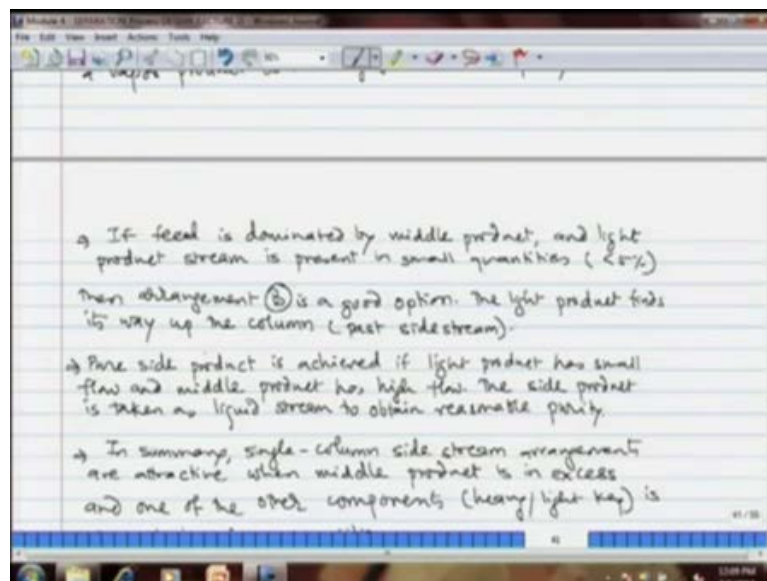 Module 4 - SEPARATION Process - Windows Journal
File Edit View Insert Actions Tools Help
a vapor product
→ If feed is dominated by middle product, and light
product stream is present in small quantities (<5%)
Then arrangement (B) is a good option. The light product finds
its way up the column (past sidestream).
→ Pure side product is achieved if light product has small
flow and middle product has high flow. The side product
is taken as liquid stream to obtain reasonable purity.
→ In summary, single-column side stream arrangements
are attractive when middle product is in excess
and one of the other components (heavy/light key) is
12:09 PM